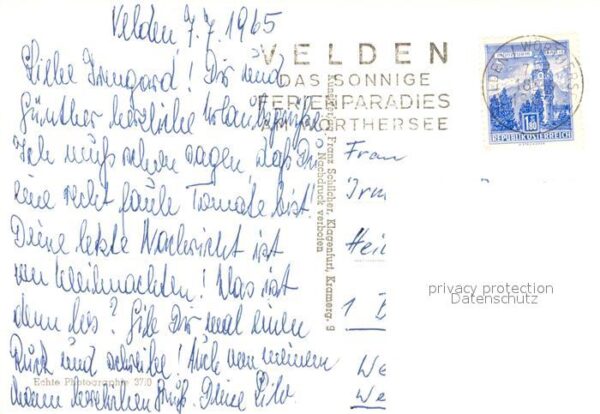 Velden 7.7.1965
Liebe Irmgard! Dir und
Günther herzliche Urlaubsgrüße
Ich muß schon sagen, daß Du
eine recht faule Tomate bist!
Deine letzte Nachricht ist
von Weihnachten! Was ist
denn los? Gib Dir mal einen
Ruck und schreibe! Auch von meinem
Mann herzlichen Gruß. Deine
Echte Photographie
VELDEN
DAS SONNIGE
FERIENPARADIES
AM WÖRTHERSEE
Franz Schilcher, Klagenfurt, Kramerg. 9
Nachdruck verboten
1.80
REPUBLIK ÖSTERREICH
Frau
Irm
Hei
1 B
We
We
privacy protection
Datenschutz